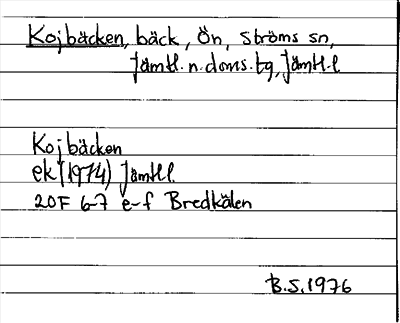 Kojbäcken, bäck, Ön, Ströms sn,
Jämtl. n. doms. tg, Jämtl. l
Kojbäcken
ek (1974) Jämtl l.
20F 6-7 e-f Bredkälen
B.S. 1976